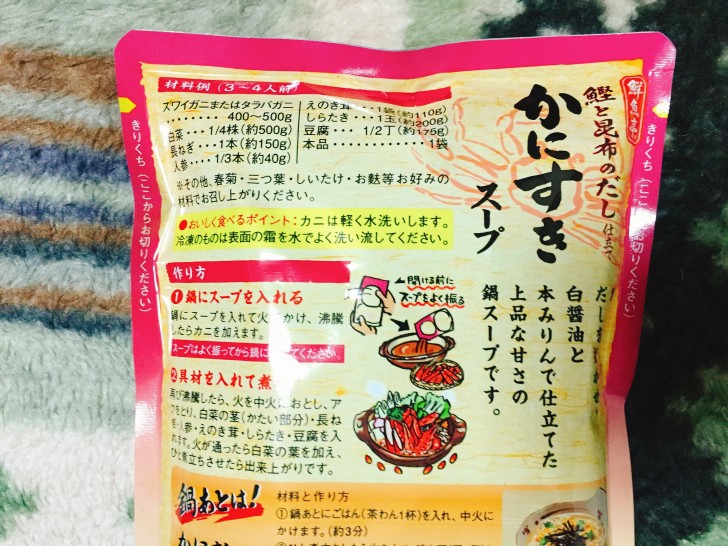 鮮魚亭
鰹と昆布のだし仕立て
かにすき
スープ
白醤油と
本みりんで仕立てた
上品な甘さの
鍋スープです。
きりくち（ここからお切りください）
きりくち（ここからお切りください）
材料例（3〜4人前）
ズワイガニまたはタラバガニ
‥‥‥‥ 400〜500g
白菜‥‥1/4株(約500g)
長ねぎ‥‥1本(約150g)
人参‥‥1/3本(約40g)
えのき茸‥‥1袋(約110g)
しらたき‥‥1玉(約200g)
豆腐‥‥1/2丁(約175g)
本品‥‥‥‥‥‥1袋
※その他、春菊・三つ葉・しいたけ・お麩等お好みの
材料でお召し上がりください。
●おいしく食べるポイント：カニは軽く水洗いします。
冷凍のものは表面の霜を水でよく洗い流してください。
作り方
❶鍋にスープを入れる
鍋にスープを入れて火にかけ、沸騰
したらカニを加えます。
スープはよく振ってから鍋に てください。
開ける前に
スープをよく振る
❷具材を入れて煮
再び沸騰したら、火を中火におとし、ア
クをとり、白菜の茎(かたい部分)・長ね
ぎ・人参・えのき茸・しらたき・豆腐を入
れます。火が通ったら白菜の葉を加え、
ひと煮立ちさせたら出来上がりです。
鍋あとは！
材料と作り方
①鍋あとにごはん(茶わん1杯)を入れ、中火に
かけます。(約3分)